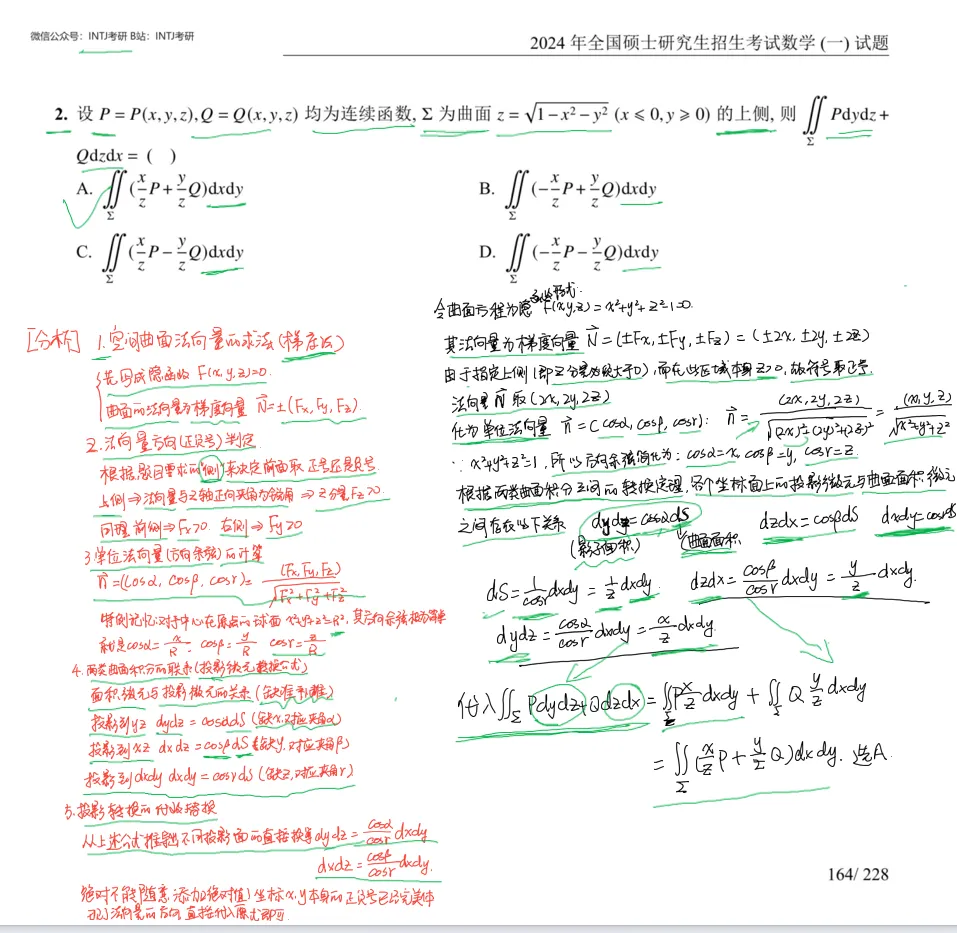 微信公众号：INTJ考研 B站：INTJ考研
2024 年全国硕士研究生招生考试数学 (一) 试题
2. 设 P = P(x,y,z), Q = Q(x,y,z) 均为连续函数, Σ 为曲面 z = √(1−x²−y²) (x ⩽ 0, y ⩾ 0) 的上侧, 则 ∬_Σ Pdydz +
Qdzdx = ( )
A. ∬_Σ (x/z P + y/z Q)dxdy
B. ∬_Σ (−x/z P + y/z Q)dxdy
C. ∬_Σ (x/z P − y/z Q)dxdy
D. ∬_Σ (−x/z P − y/z Q)dxdy
[分析] 1.空间曲面法向量的求法(梯度法)
先写成隐函数 F(x,y,z)=0.
曲面的法向量为梯度向量 N⃗=±(Fx,Fy,Fz).
2.法向量方向(正负号)判定
根据题目要求的"侧"来决定前面取正号还是负号
上侧⇒法向量与z轴正向夹角为锐角⇒z分量Fz>0.
同理前侧⇒Fx>0 右侧⇒Fy>0
3.单位法向量(方向余弦)的计算
n⃗=(cosα, cosβ, cosγ)= (Fx,Fy,Fz)/√(Fx²+Fy²+Fz²)
特例记忆:对中心在原点的球面x²+y²+z²=R², 其方向余弦极为简单
就是cosα=x/R cosβ=y/R cosγ=z/R
4.两类曲面积分的联系(投影微元转换公式)
面积微元与投影微元的关系(缺谁乘谁)
投影到yz dydz=cosαdS(缺x,对应夹角α)
投影到xz dxdz=cosβdS(缺y,对应夹角β)
投影到dxdy dxdy=cosγds(缺z,对应夹角γ)
5.投影转换的代数替换
从上述公式推导出不同投影面的直接换算dydz=cosα/cosγ dxdy
dxdz=cosβ/cosγ dxdy.
绝对不能随意添加绝对值! 坐标x,y本身的正负号已经完美体
现了法向量的方向 直接代入原式即可.
令曲面方程为隐函数形式: F(x,y,z)=x²+y²+z²-1=0.
其法向量为梯度向量 N⃗=(±Fx,±Fy,±Fz)=(±2x,±2y,±2z)
由于指定上侧(即z分量为恒大于0), 而在此区域本身z>0, 故符号取正号.
法向量N⃗取(2x,2y,2z)
化为单位法向量 n⃗=(cosα,cosβ,cosγ): n⃗=(2x,2y,2z)/√((2x)²+(2y)²+(2z)²)=(x,y,z)/√(x²+y²+z²)
∵x²+y²+z²=1, 所以方向余弦简化为: cosα=x, cosβ=y, cosγ=z.
根据两类曲面积分之间的转换定理, 各个坐标面上的投影微元与曲面面积微元
之间存在以下关系 dydz=cosαdS dzdx=cosβdS dxdy=cosγdS
(影子面积) (曲面面积
dS=1/cosγ dxdy=1/z dxdy. dzdx=cosβ/cosγ dxdy=y/z dxdy.
dydz=cosα/cosγ dxdy=x/z dxdy.
代入∬_Σ Pdydz+Qdzdx=∬_Σ P x/z dxdy+∬_Σ Q y/z dxdy
=∬_Σ (x/z P+y/z Q)dxdy. 选A
164/ 228